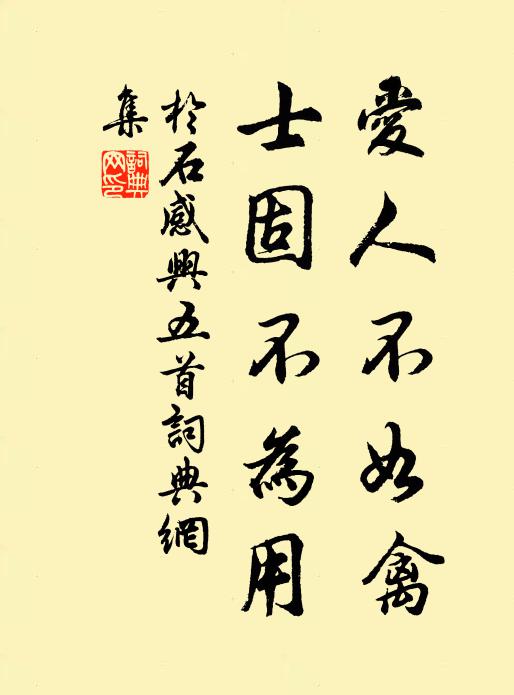 愛人不如禽
士固不為用
於石感興五首詞典網
集
詞典
网印